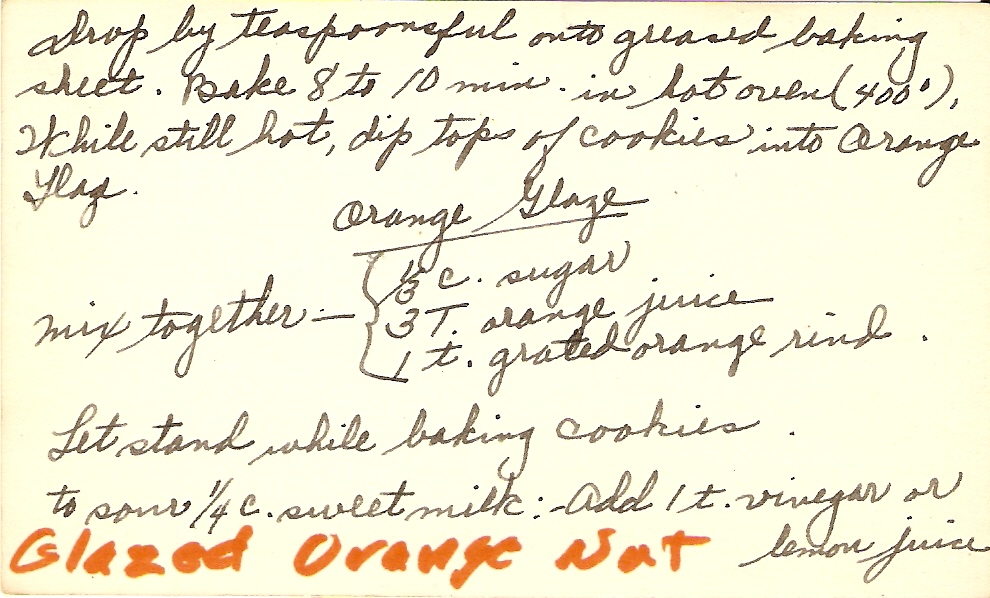 Drop by teaspoonsful onto greased baking
sheet. Bake 8 to 10 min. in hot oven (400°).
While still hot, dip tops of cookies into Orange
Glaz.
Orange Glaze
mix together — { 1/3 c. sugar
3 T. orange juice
1 t. grated orange rind.
Let stand while baking cookies.
to sour 1/4 c. sweet milk:- Add 1 t. vinegar or
lemon juice
Glazed Orange Nut